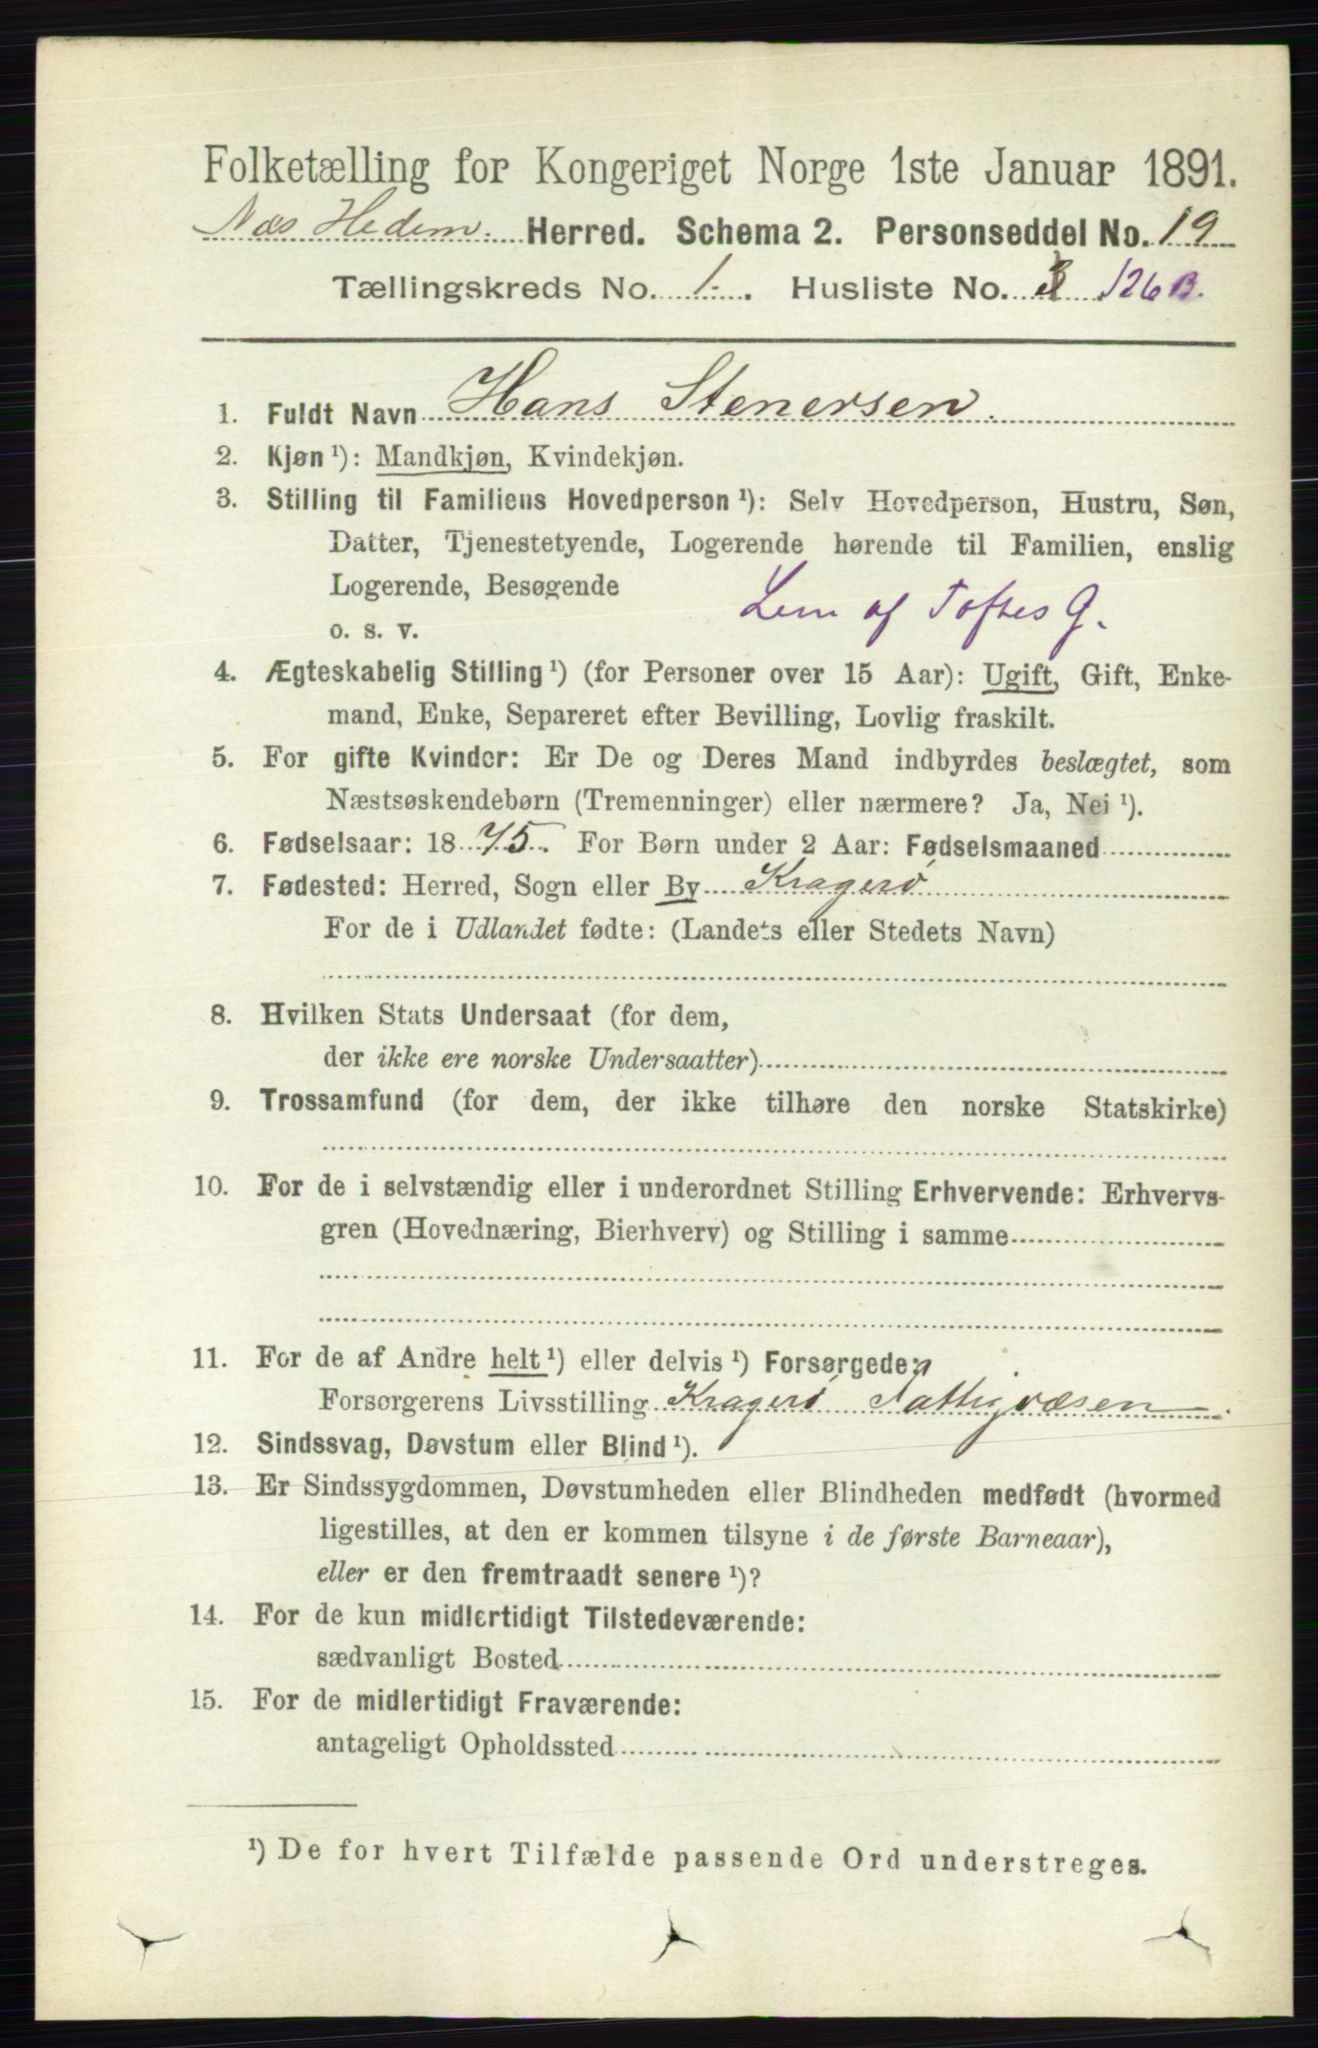 Folketælling for Kongeriget Norge 1ste Januar 1891.
Næs Hedem. Herred. Schema 2. Personseddel No. 19
Tællingskreds No. 1. Husliste No. 126 B.
1. Fuldt Navn Hans Stenersen.
2. Kjøn ¹): Mandkjøn, Kvindekjøn.
3. Stilling til Familiens Hovedperson ¹): Selv Hovedperson, Hustru, Søn,
Datter, Tjenestetyende, Logerende hørende til Familien, enslig
Logerende, Besøgende
o. s. v. Lem af Toftes G.
4. Ægteskabelig Stilling ¹) (for Personer over 15 Aar): Ugift, Gift, Enke-
mand, Enke, Separeret efter Bevilling, Lovlig fraskilt.
5. For gifte Kvinder: Er De og Deres Mand indbyrdes beslægtet, som
Næstsøskendebørn (Tremenninger) eller nærmere? Ja, Nei ¹).
6. Fødselsaar: 1875. For Børn under 2 Aar: Fødselsmaaned
7. Fødested: Herred, Sogn eller By Kragerø
For de i Udlandet fødte: (Landets eller Stedets Navn)
8. Hvilken Stats Undersaat (for dem,
der ikke ere norske Undersaatter)
9. Trossamfund (for dem, der ikke tilhøre den norske Statskirke)
10. For de i selvstændig eller i underordnet Stilling Erhvervende: Erhvervs-
gren (Hovednæring, Bierhverv) og Stilling i samme
11. For de af Andre helt ¹) eller delvis ¹) Forsørgede:
Forsørgerens Livsstilling Kragerø Fattigvæsen.
12. Sindssvag, Døvstum eller Blind ¹).
13. Er Sindssygdommen, Døvstumheden eller Blindheden medfødt (hvormed
ligestilles, at den er kommen tilsyne i de første Barneaar),
eller er den fremtraadt senere ¹)?
14. For de kun midlertidigt Tilstedeværende:
sædvanligt Bosted
15. For de midlertidigt Fraværende:
antageligt Opholdssted
¹) De for hvert Tilfælde passende Ord understreges.